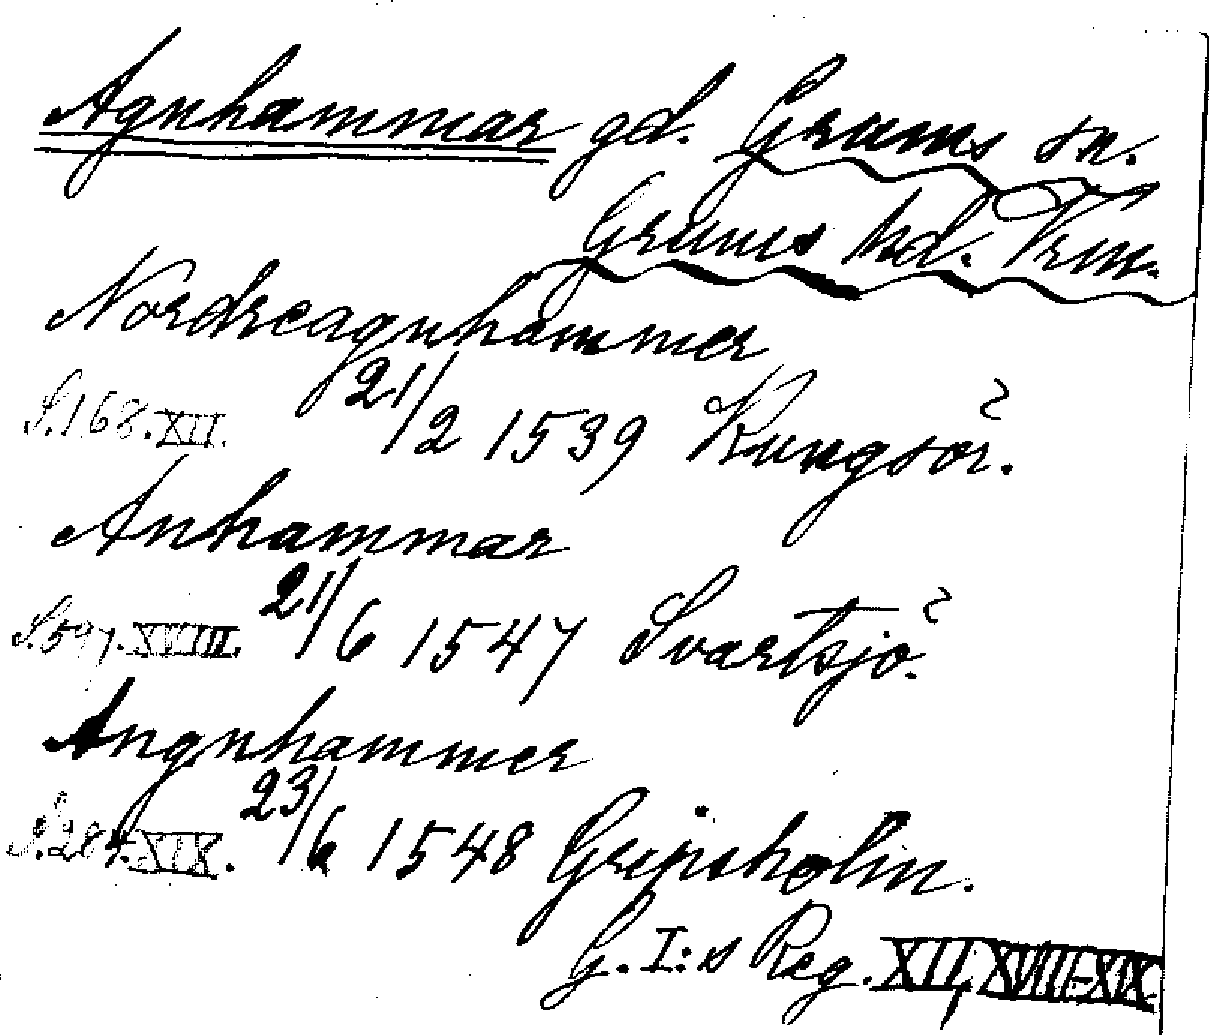 Agnhammar gd. Grums sn.
Grums hd. Vrm.
Nordreagnhammer
S. 168. XII. 21/2 1539 Kungsör.
Anhammar
S. 597. XVIII. 21/6 1547 Svartsjö.
Angnhammer
S. 284. XIX. 23/6 1548 Gripsholm.
G. I:s Reg. XII, XVIII-XIX